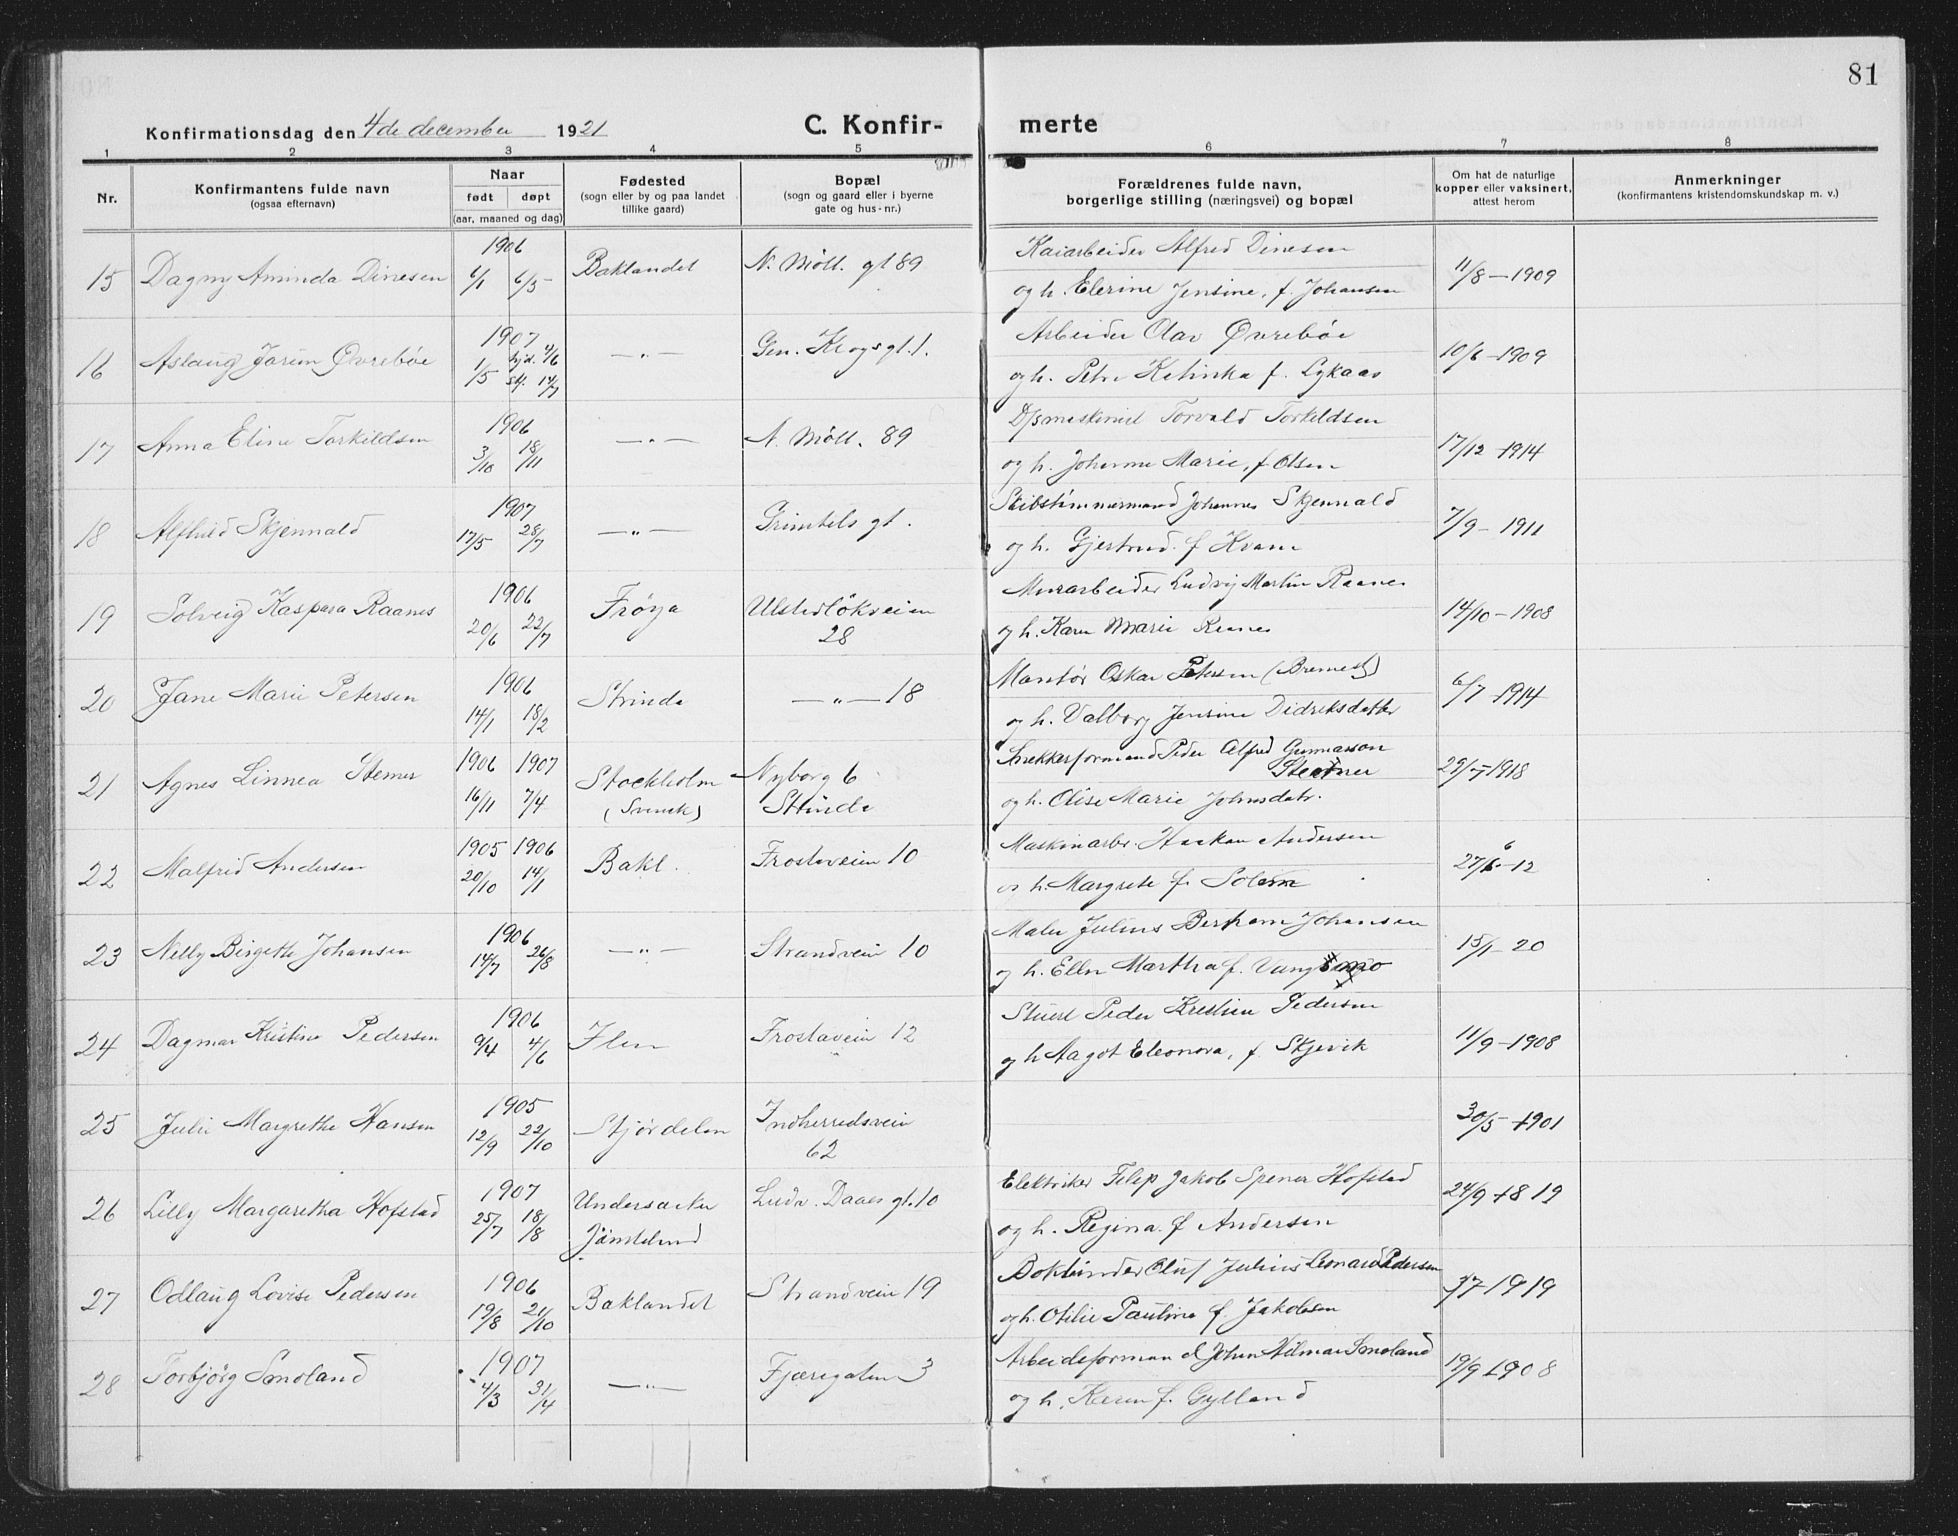 81
Konfirmationsdag den 4de december 1921
C. Konfir- merte
1 2 3 4 5 6 7 8
Nr.
Konfirmantens fulde navn
(ogsaa efternavn)
Naar
født døpt
(aar, maaned og dag)
Fødested
(sogn eller by og paa landet
tillike gaard)
Bopæl
(sogn og gaard eller i byerne
gate og hus-nr.)
Forældrenes fulde navn,
borgerlige stilling (næringsvei) og bopæl
Om hat de naturlige
kopper eller vaksinert,
attest herom
Anmerkninger
(konfirmantens kristendomskundskap m. v.)
1906 Kaiarbeider Alfred Dinesen
15 Dagny Aminda Dinesen 6/1 6/5 Baklandet N. Møll. gt 89 11/8-1909
og h. Elerine Jensine, f. Johansen
1907 Arbeider Olav Øvrebøe
16 Aslaug Jorun Øvrebøe 1/5 hjd. 4/6 —„— Gen. Krogs gt. 1. 10/6-1909
st. 14/7 og h. Petra Katinka f. Lykaas
1906 D/smaskinist Torvald Torkildsen
17 Anna Eline Torkildsen 3/10 18/11 —„— N. Møll. 89 17/12-1914
og h. Johanne Marie, f. Olsen
1907 Skibstimmermand Johannes Skjennald
18 Alfhild Skjennald 17/5 28/7 —„— Grimkels gt. 7/9-1911
og h. Gjertrud. f Kvam
1906 Murarbeider Ludvig Martin Raanes
19 Solveig Kaspara Raanes 20/6 22/7 Frøya Ulstedløkveien 14/10-1908
28 og h. Karen Marie Raanes
1906 Montør Oskar Petersen (Bremest)
20 Jane Marie Petersen 14/1 18/2 Strinda —„— 18 6/7-1914
og h. Valborg Jensine Didriksdatter
1906 1907 Snekkerformand Peder Alfred Gunnarson
21 Agnes Linnea Stemer 16/11 7/4 Stockholm Nyborg 6
(Svensk) Strinda og h. Olise Marie Johnsdatr.
1905 1906 Maskinarbr. Haakon Andersen
22 Malfrid Andersen 20/10 14/1 Bakl. Frostaveien 10 27/6-12
og h. Margrete f. Solem
1906 Maler Julius Bertram Johansen
23 Nelly Birgitte Johansen 14/7 26/8 —„— Strandveien 10 15/1-20
og h. Ellen Martha f.
1906 Stuert Peder Kristian Pedersen
24 Dagmar Kristine Pedersen 9/4 4/6 Ilen Frostaveien 12 11/9-1908
og h Aagot Eleonora, f. Skjevik
1905
25 Julie Margrethe Hansen 12/9 22/10 Stjørdalen Indherredsveien 30/5-1901
62
1907 Elektriker Filip Jakob Spener Hofstad
26 Lilly Margaretha Hofstad 25/7 18/8 Undersaker Ludv. Daaes gt. 10 24/9-1819
Jämtland og h. Regina f Andersen
1906 Bokbinder Oluf Julius Leonard Pedersen
27 Odlaug Lovise Pedersen 19/8 21/10 Baklandet Strandveien 19
og h. Otilie Pauline f Jakobsen
1907 Arbeidsformand John Hilmar Smoland
28 Torbjørg Smoland 4/3 31/4 —„— Fjæregaten 3 19/9-1908
og h. Karen f. Gylland